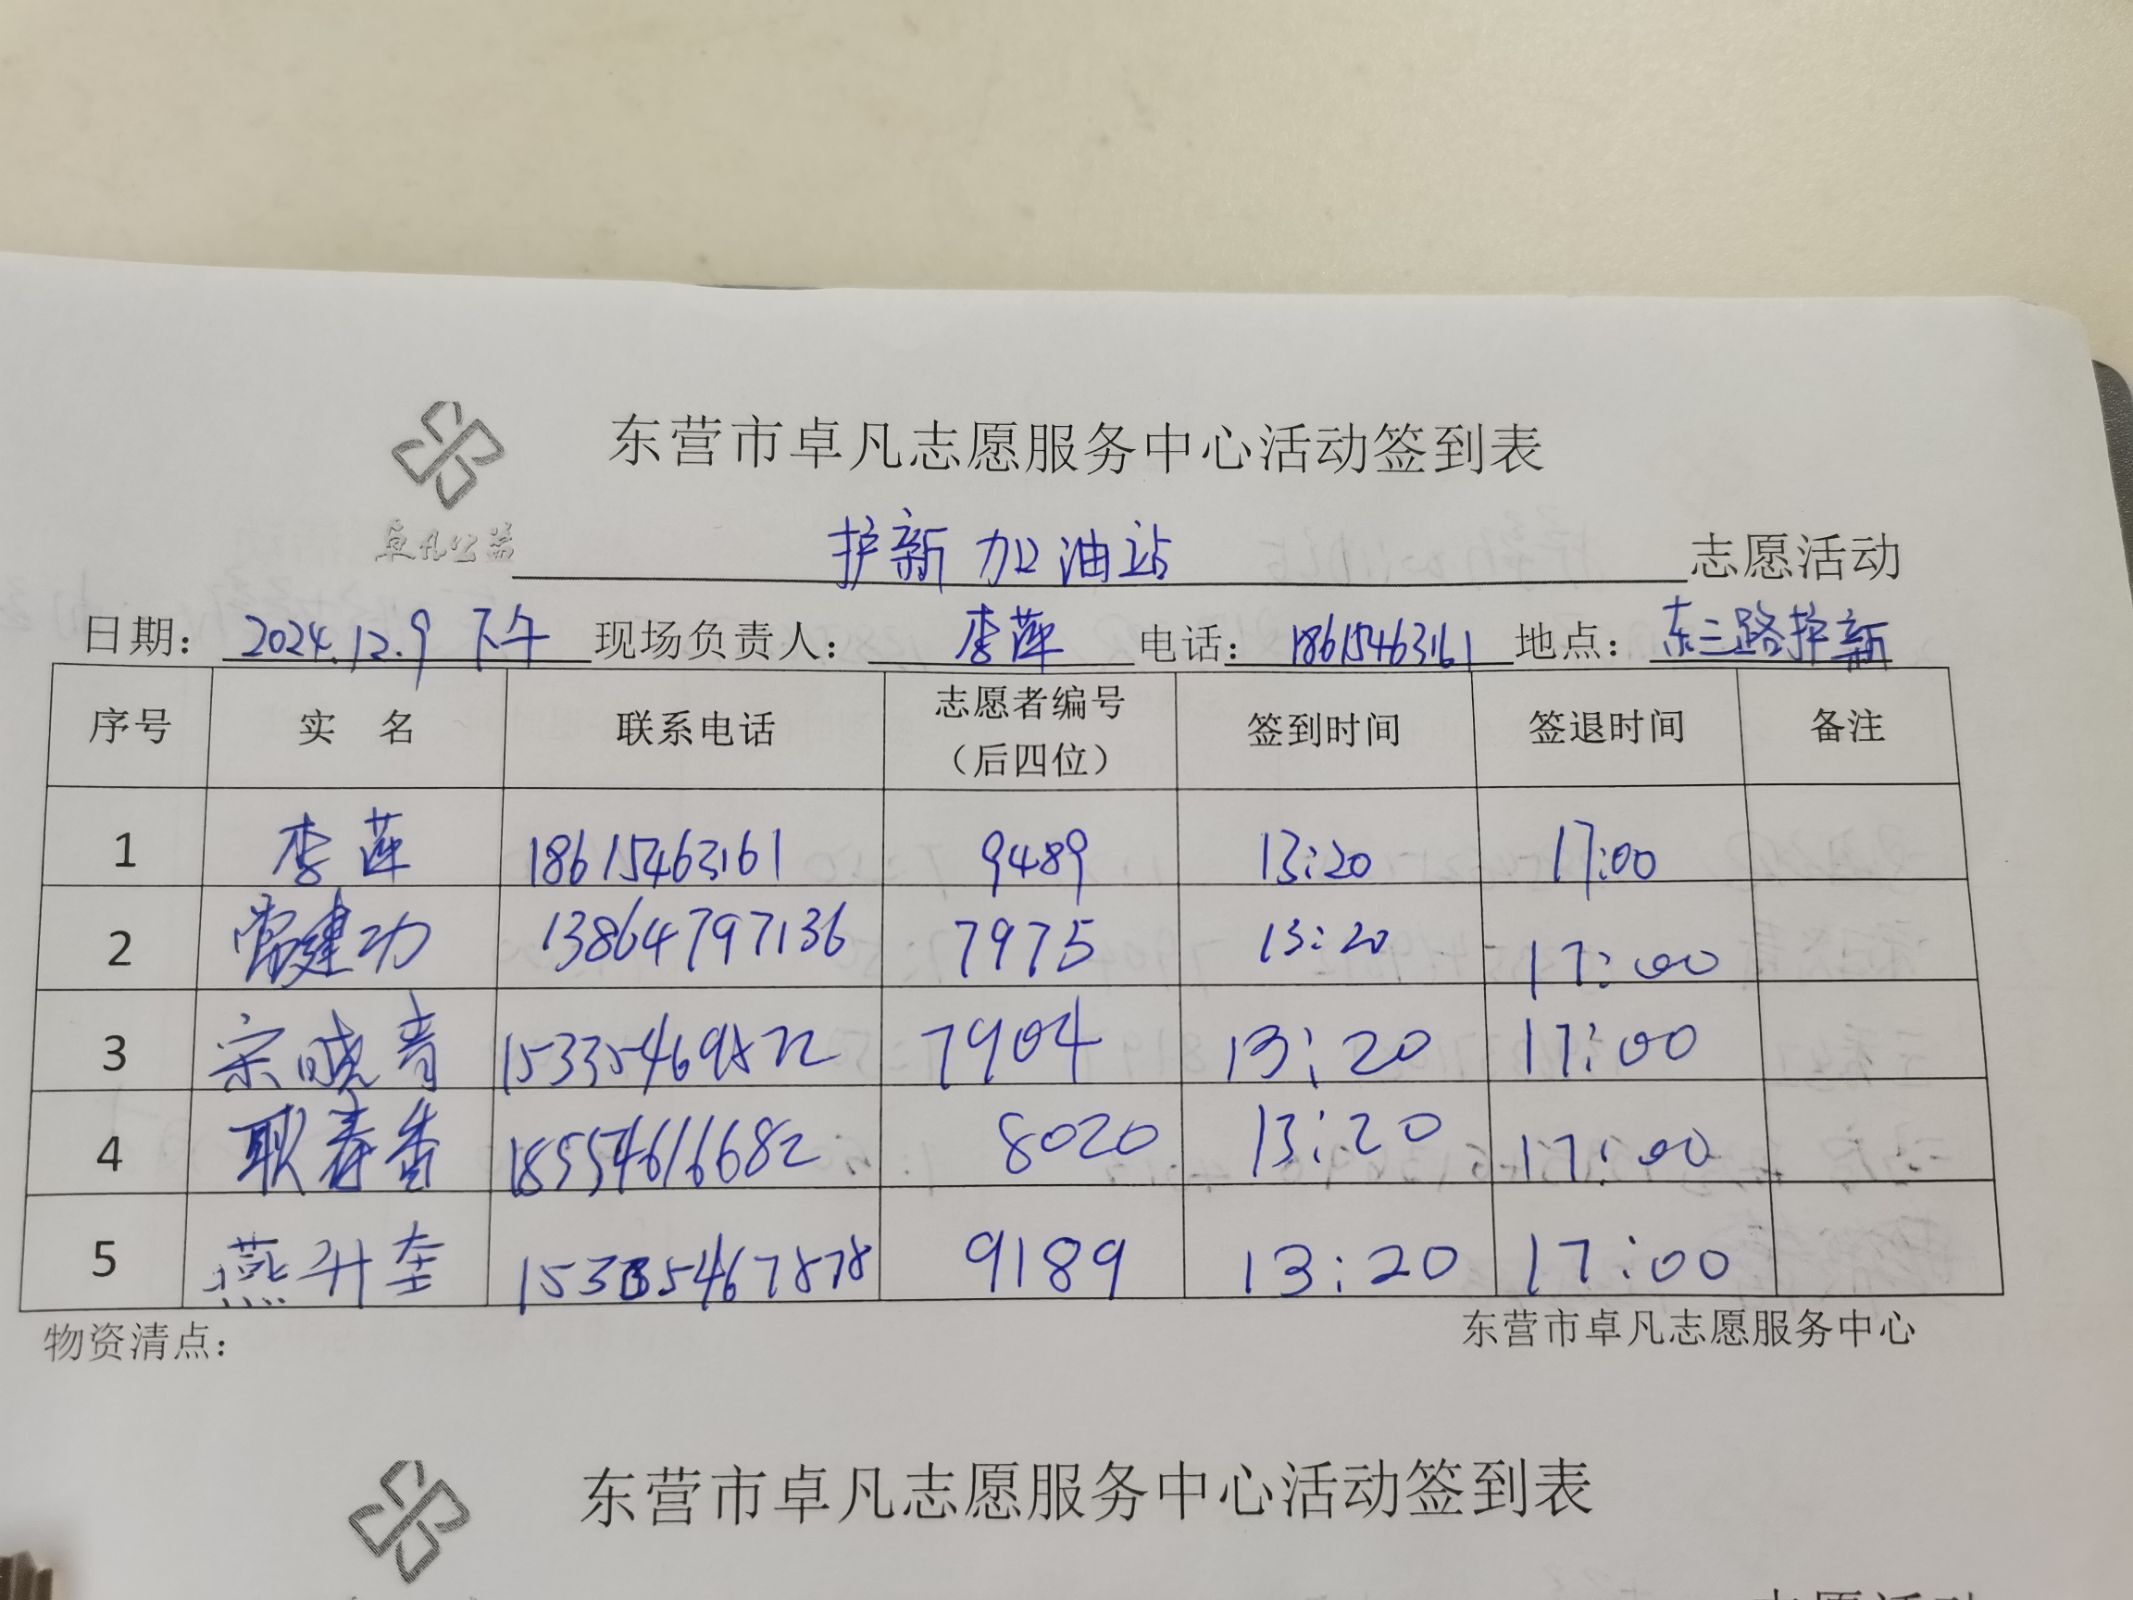 东营市卓凡志愿服务中心活动签到表
卓凡公益
护新加油站 志愿活动
日期: 2024.12.9 下午 现场负责人: 李莲 电话: 18615463161 地点: 东三路护新
序号 实 名 联系电话 志愿者编号（后四位） 签到时间 签退时间 备注
1 李莲 18615463161 9489 13:20 17:00
2 常建功 13864797136 7975 13:20 17:00
3 宋晓青 15335469872 7904 13:20 17:00
4 耿春香 18554616682 8020 13:20 17:00
5 燕升奎 15335467878 9189 13:20 17:00
物资清点: 东营市卓凡志愿服务中心
东营市卓凡志愿服务中心活动签到表
志愿活动